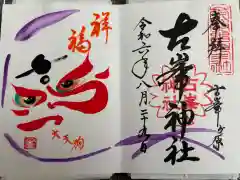 奉拝
古峯神社
令和六年八月二十九日
古峯ヶ原
祥福
大天狗